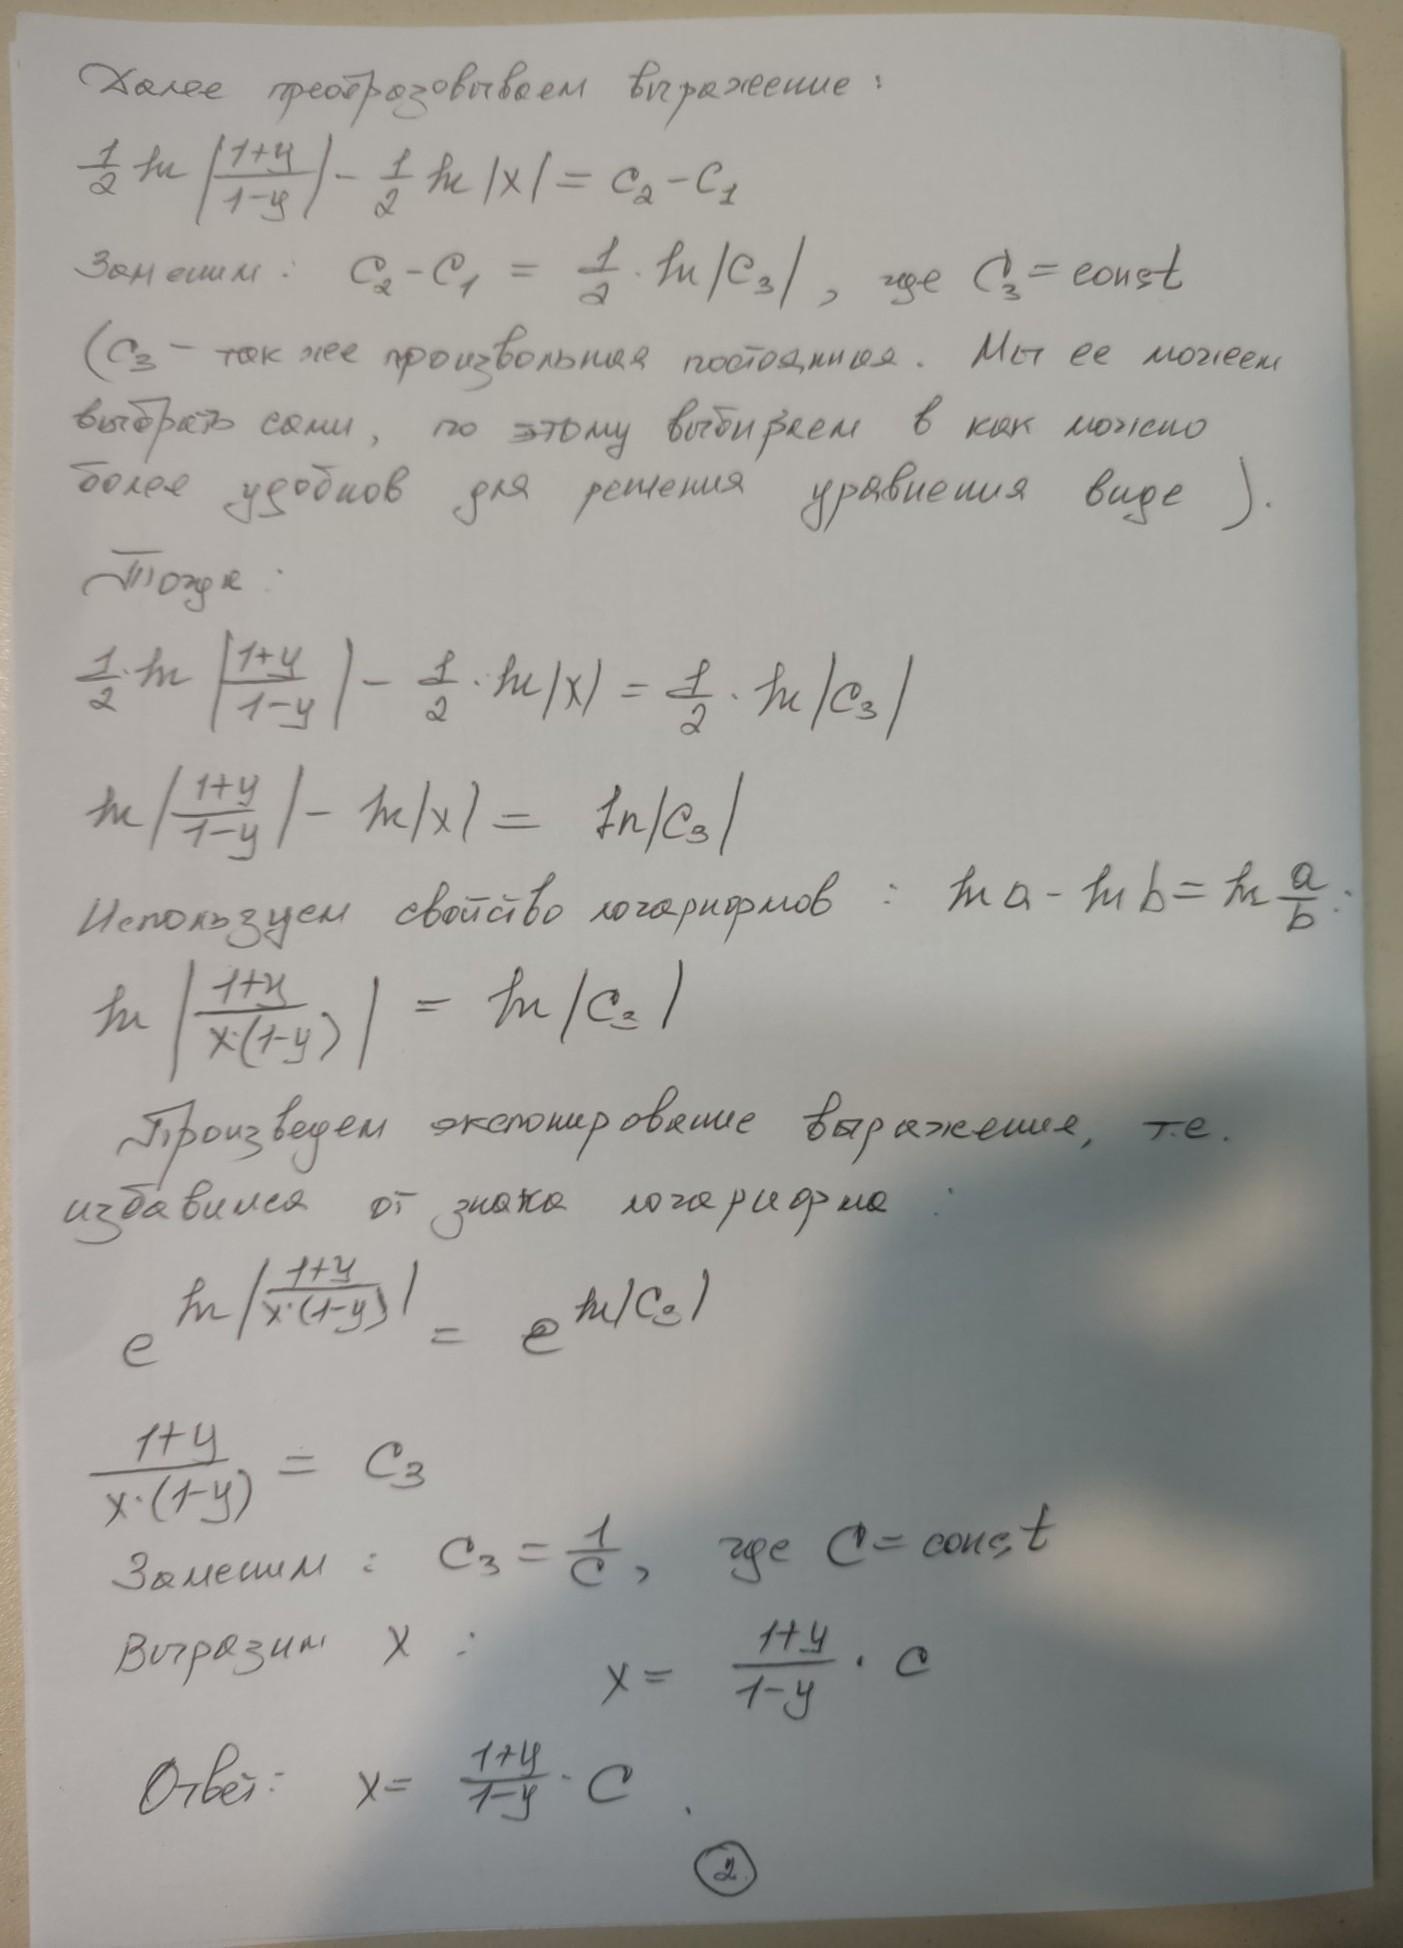 Далее преобразовываем выражение:
1/2 ln |(1+y)/(1-y)| - 1/2 ln |x| = C₂ - C₁
Заменим: C₂ - C₁ = 1/2 · ln |C₃|, где C₃ = const
(C₃ - так же произвольная постоянная. Мы ее можем
выбрать сами, по этому выбираем в как можно
более удобнов для решения уравнения виде).
Тогда:
1/2 · ln |(1+y)/(1-y)| - 1/2 · ln |x| = 1/2 · ln |C₃|
ln |(1+y)/(1-y)| - ln |x| = ln |C₃|
Используем свойство логарифмов: ln a - ln b = ln a/b:
ln |(1+y)/(x·(1-y))| = ln |C₃|
Произведем экспонирование выражения, т.е.
избавимся от знака логарифма:
e^(ln |(1+y)/(x·(1-y))|) = e^(ln |C₃|)
(1+y)/(x·(1-y)) = C₃
Заменим: C₃ = 1/C, где C = const
Выразим x: x = (1+y)/(1-y) · C
Ответ: x = (1+y)/(1-y) · C.
2